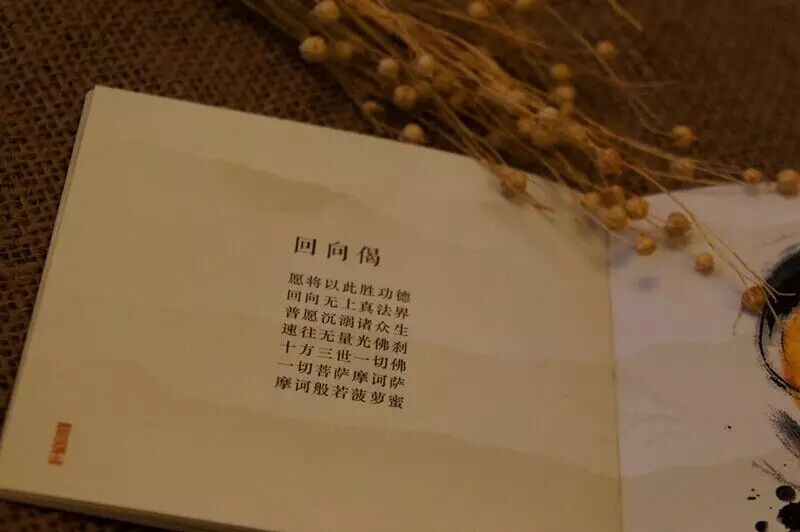 回向偈
愿将以此胜功德
回向无上真法界
普愿沉溺诸众生
速往无量光佛刹
十方三世一切佛
一切菩萨摩诃萨
摩诃般若菠萝蜜